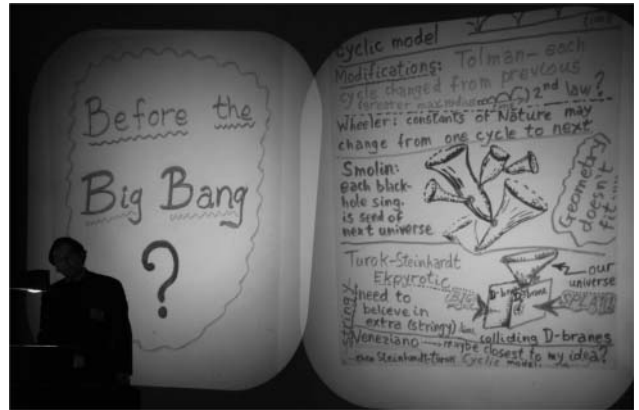 Before the
Big Bang
?
Cyclic model
time
Modifications: Tolman— each
cycle changed from previous
2nd law?
Wheeler: constants of Nature may
change from one cycle to next
Smolin:
each black-
hole sing.
is seed of
next universe
Geometry
doesn't
fit....
Turok-Steinhardt
Ekpyrotic
our
universe
D-brane D-brane
need to
believe in
extra (stringy) dims
colliding D-branes
Veneziano → maybe closest to my idea?
even Steinhardt-Turok cyclic model